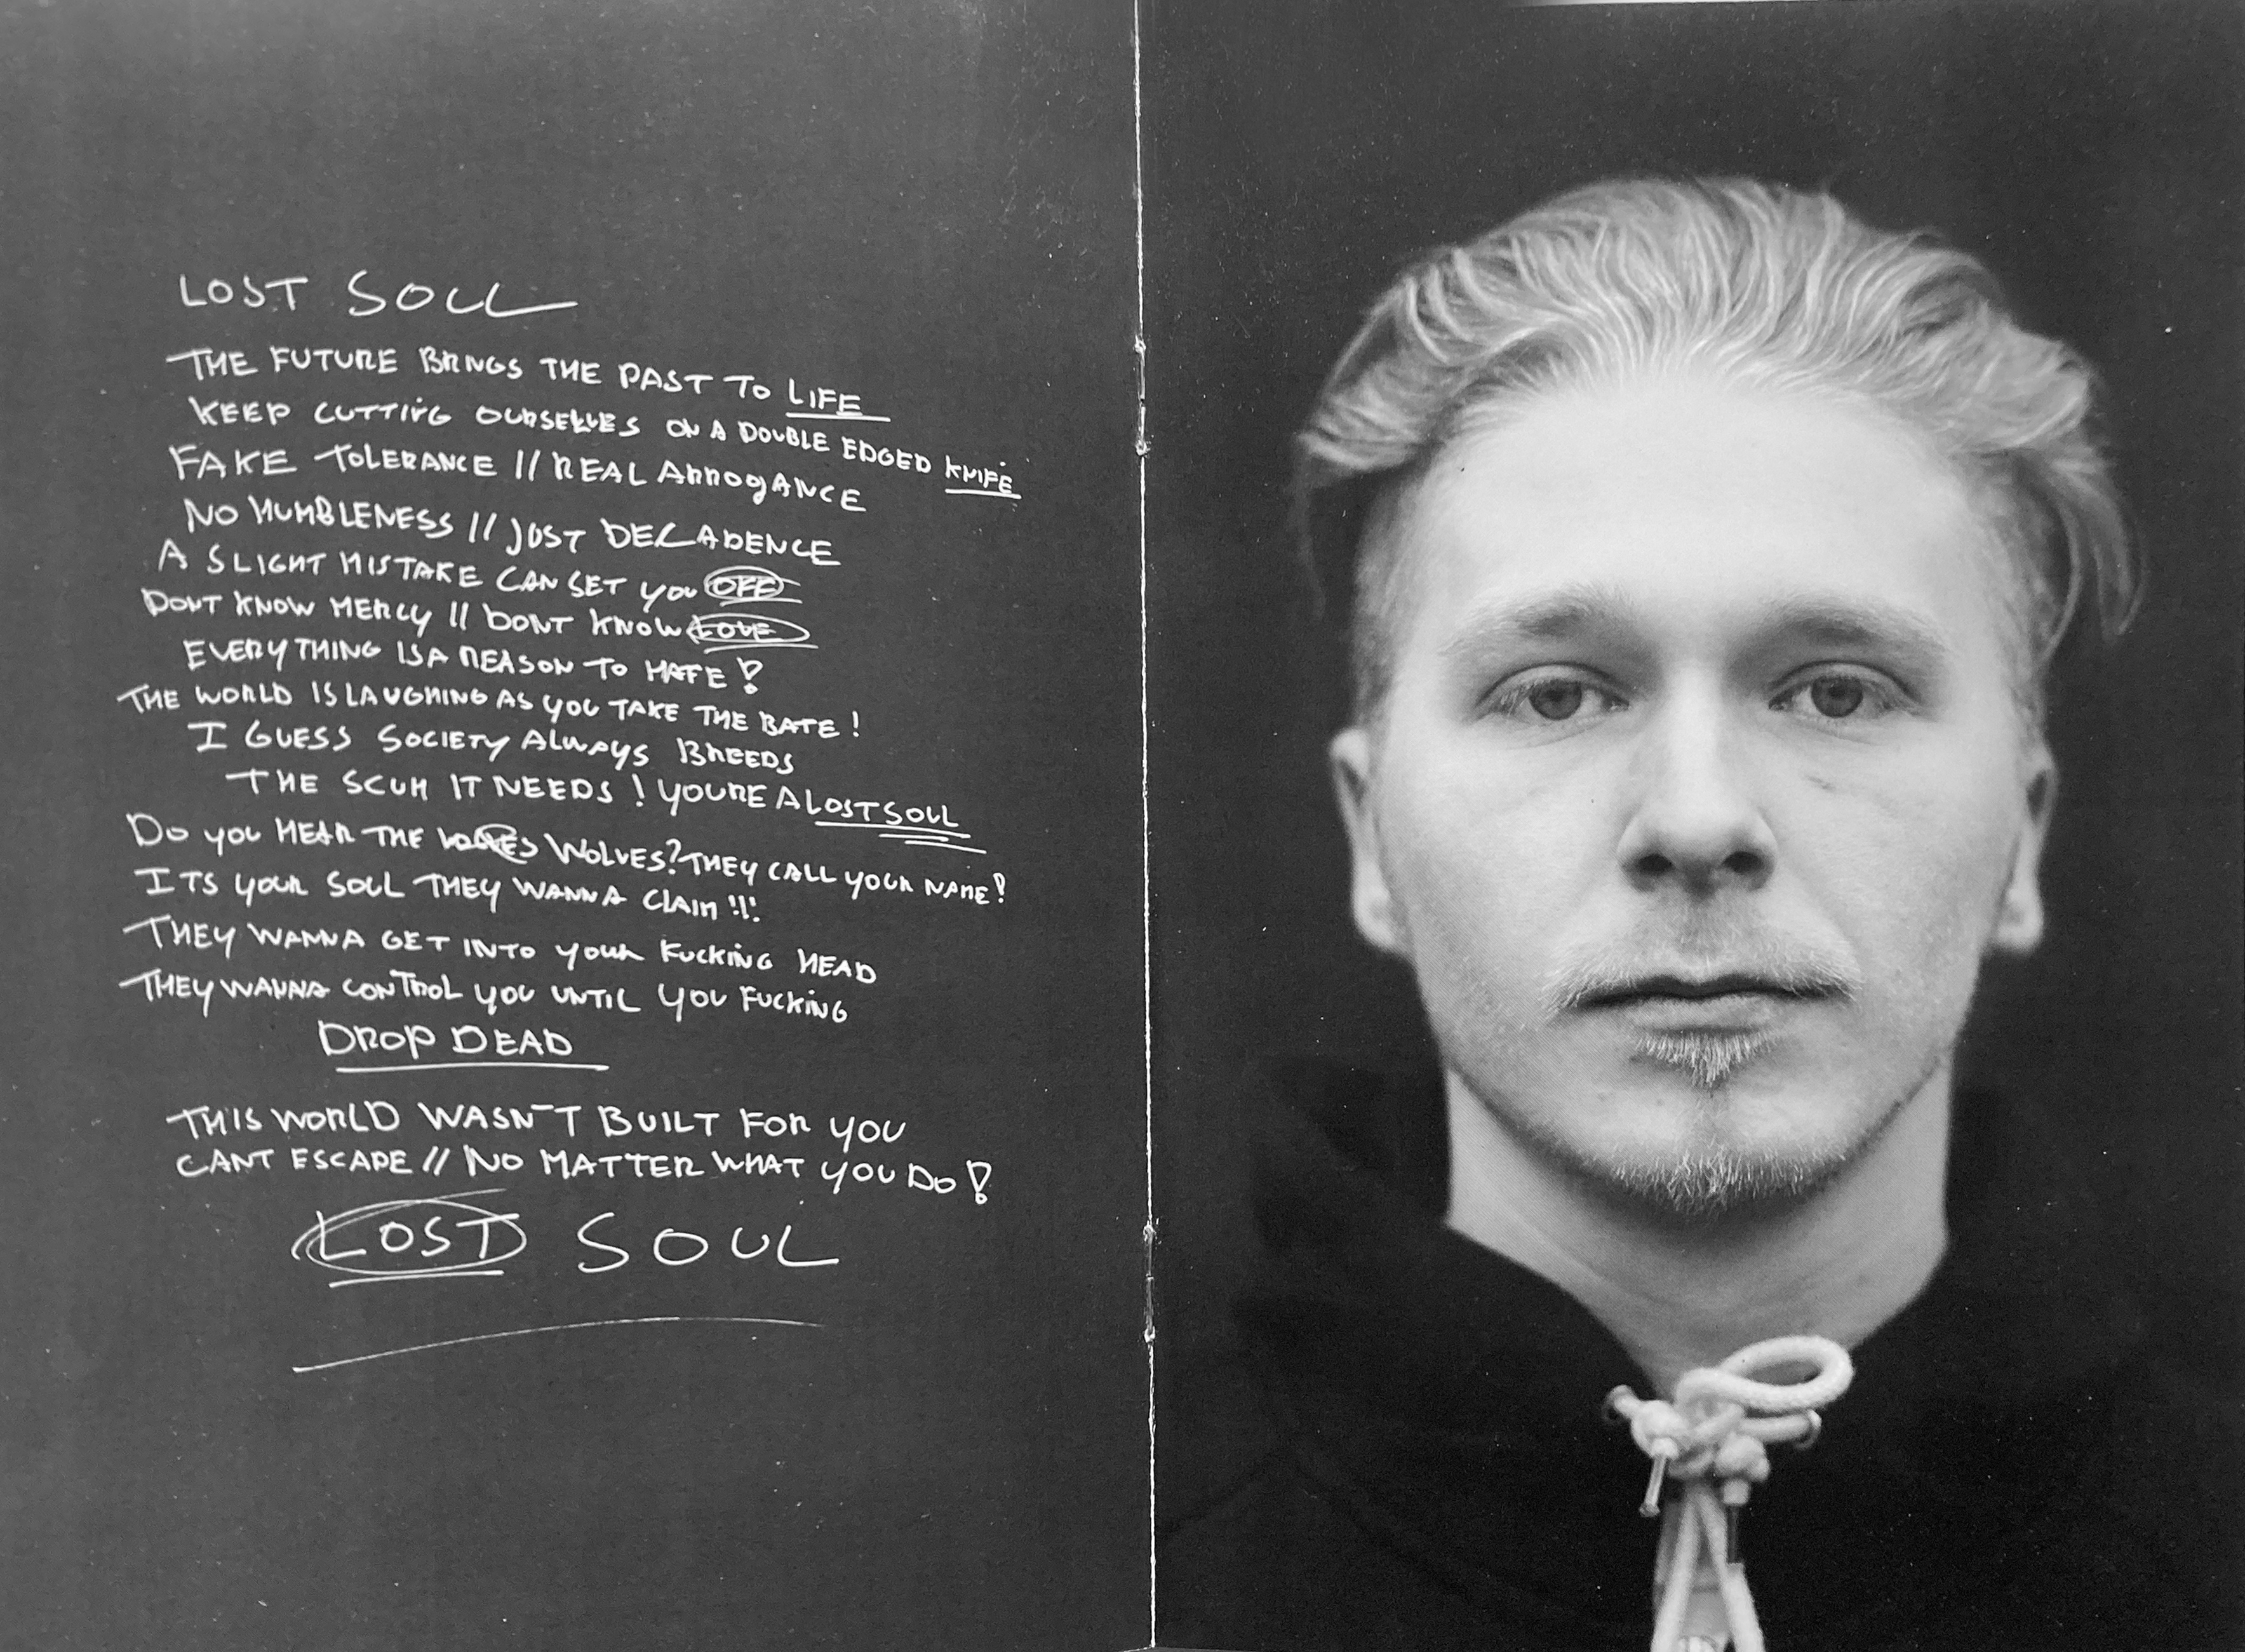 LOST SOUL
THE FUTURE BRINGS THE PAST TO LIFE
KEEP CUTTING OURSELVES ON A DOUBLE EDGED KNIFE
FAKE TOLERANCE // REAL ARROGANCE
NO HUMBLENESS // JUST DECADENCE
A SLIGHT MISTAKE CAN SET YOU OFF
DONT KNOW MERCY // DONT KNOW LOVE
EVERYTHING IS A REASON TO HATE!
THE WORLD IS LAUGHING AS YOU TAKE THE BATE!
I GUESS SOCIETY ALWAYS BREEDS
THE SCUM IT NEEDS! YOURE A LOST SOUL
DO YOU HEAR THE WOLVES? THEY CALL YOUR NAME!
ITS YOUR SOUL THEY WANNA CLAIM!!!
THEY WANNA GET INTO YOUR FUCKING HEAD
THEY WANNA CONTROL YOU UNTIL YOU FUCKING
DROP DEAD
THIS WORLD WASN'T BUILT FOR YOU
CANT ESCAPE // NO MATTER WHAT YOU DO!
LOST SOUL